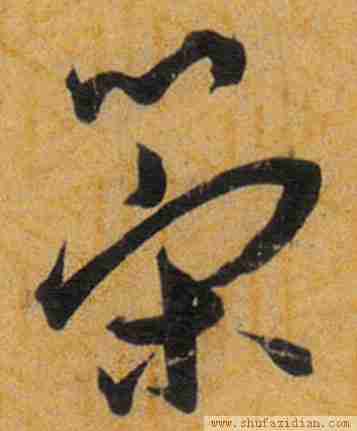 崇
www.shufazidian.com